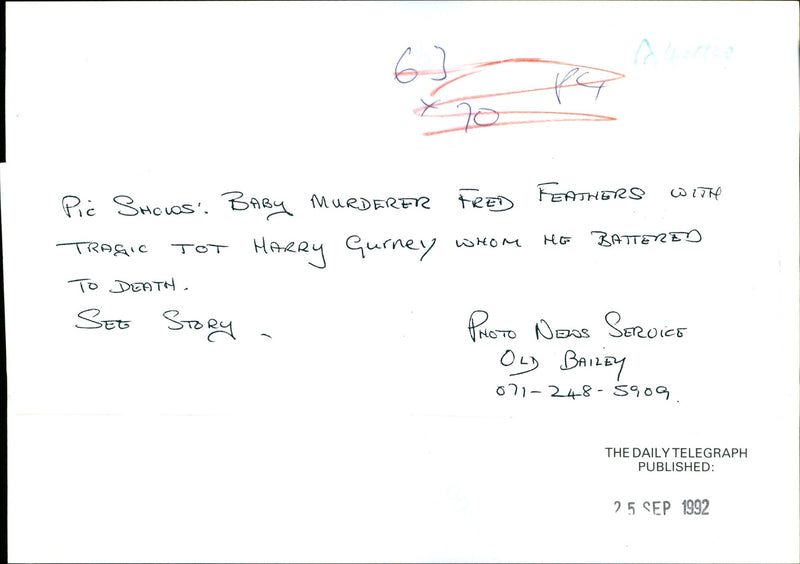 63
x 70 P4
Pic Shows: Baby Murderer Fred Feathers with
Tragic Tot Harry Gurney whom he battered
to death.
See Story -
Photo News Service
Old Bailey
071-248-5909.
THE DAILY TELEGRAPH
PUBLISHED:
25 SEP 1992